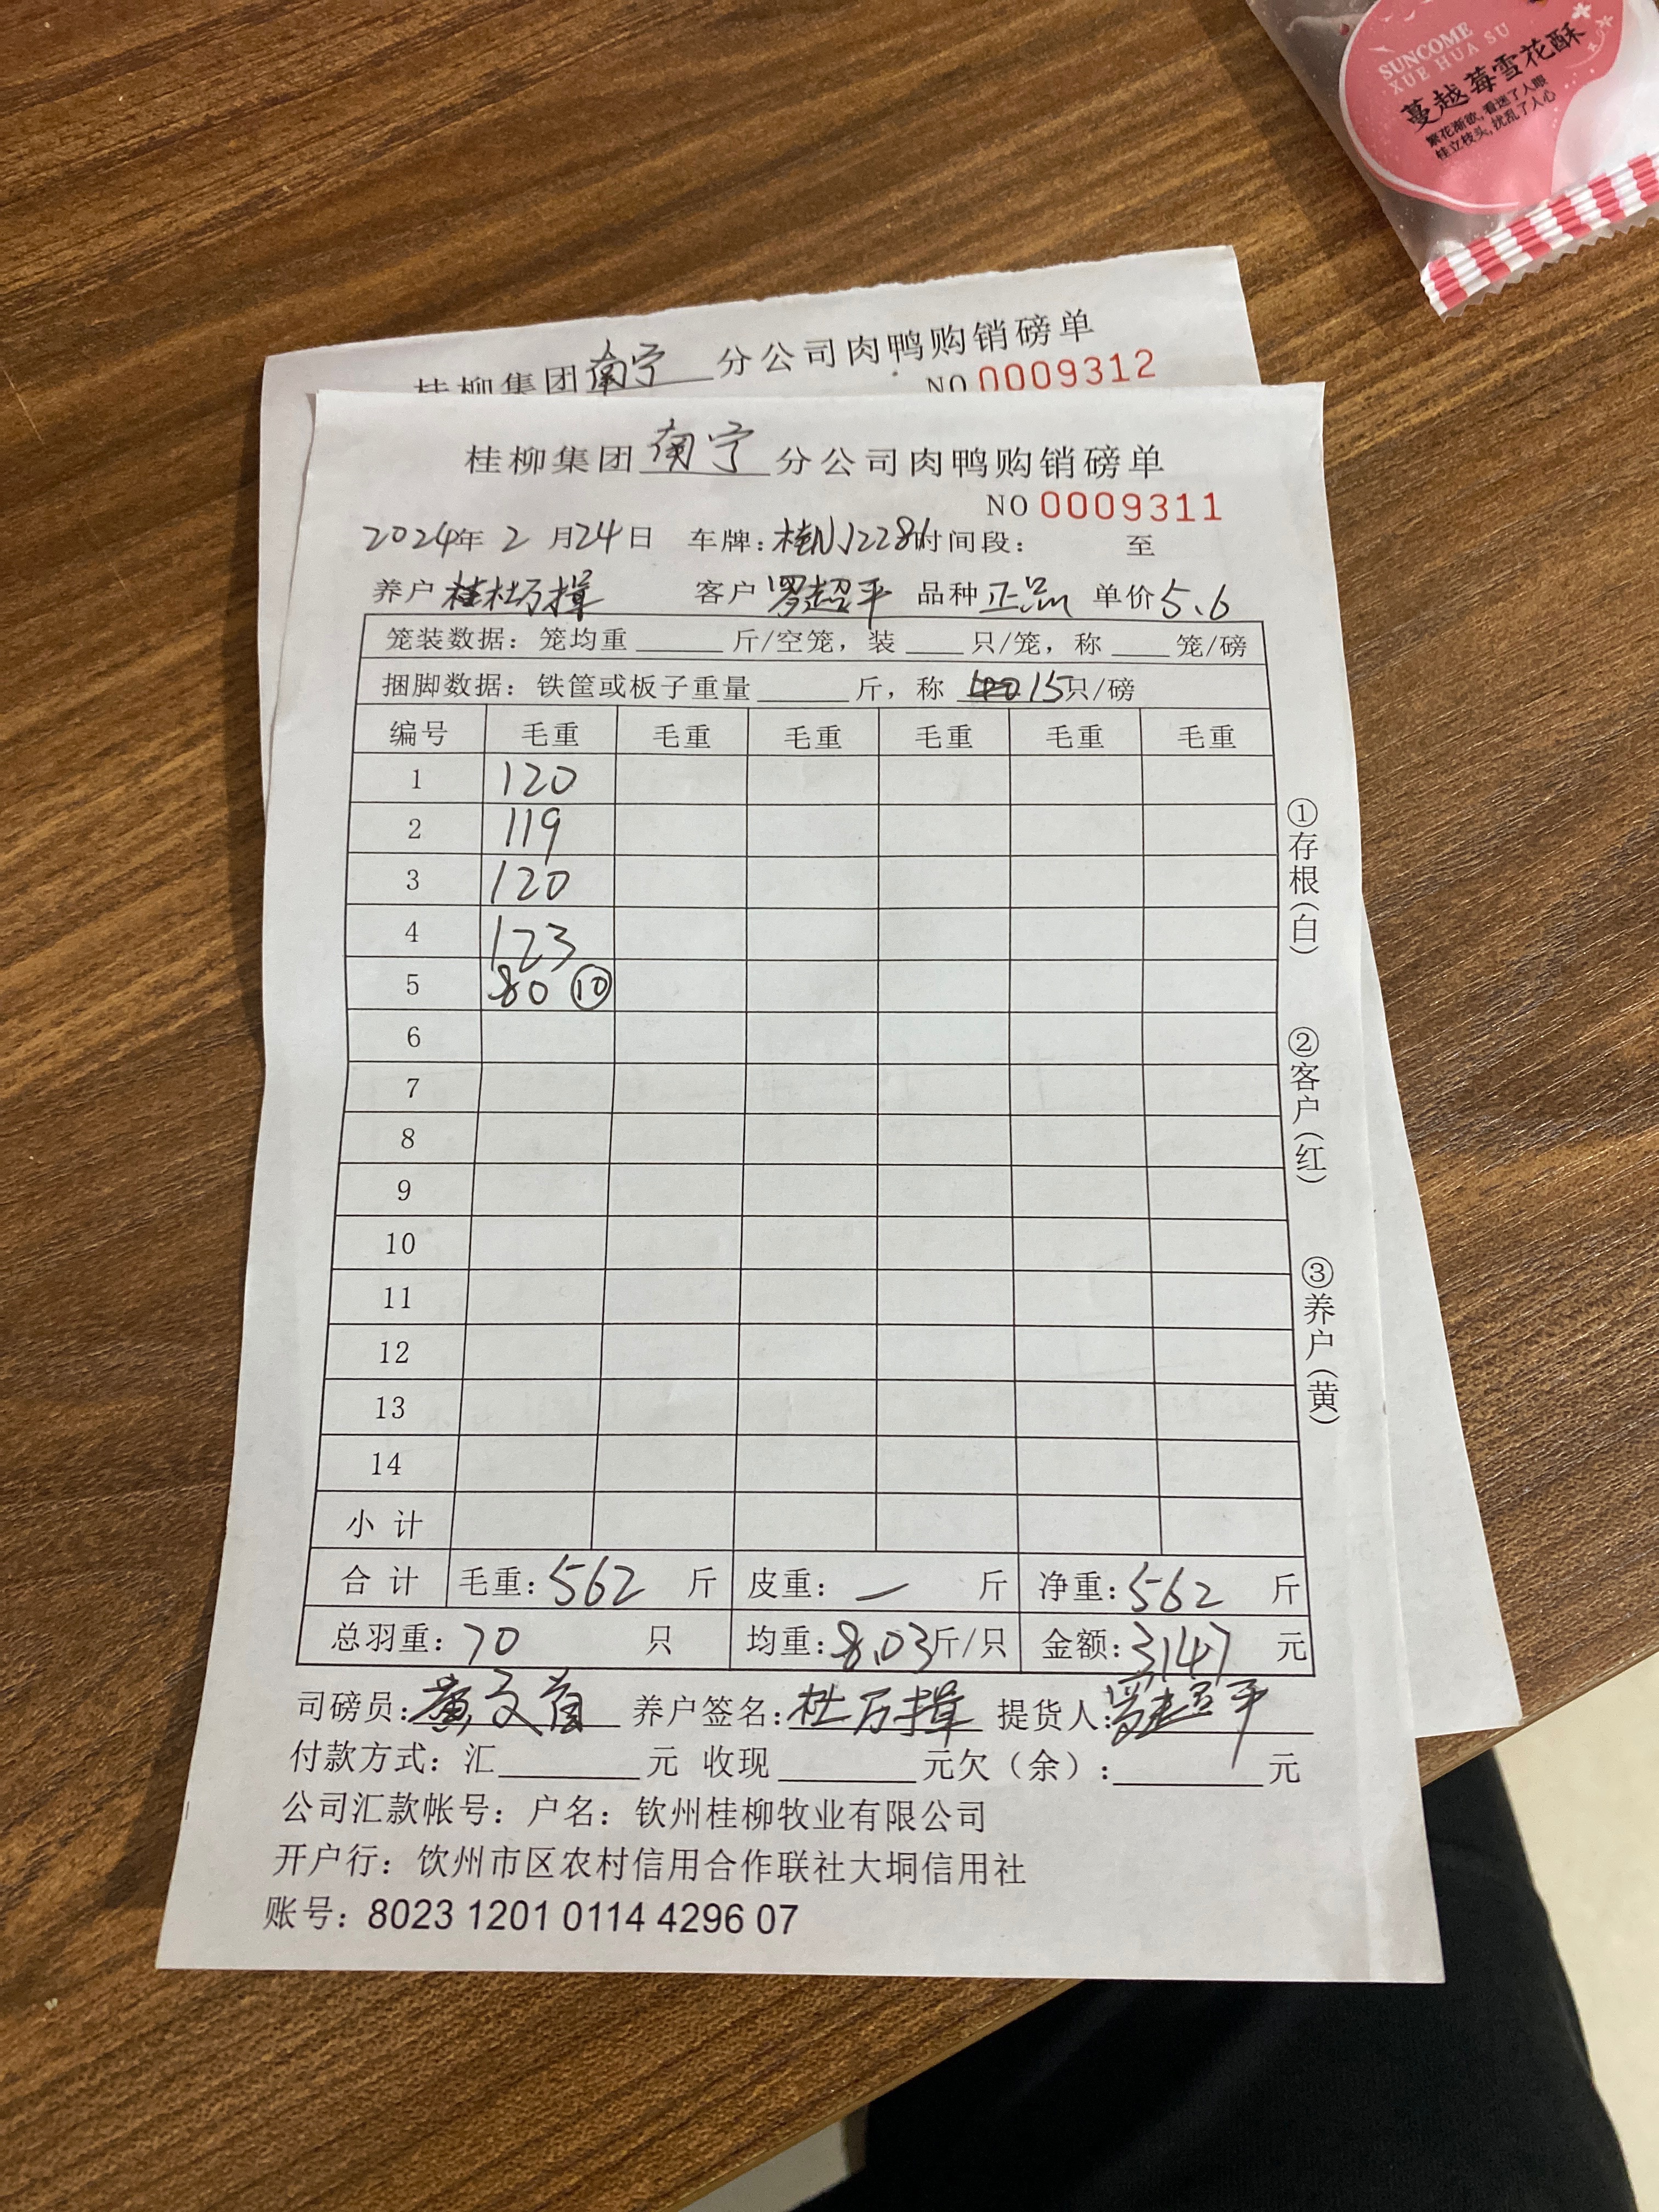 SUNCOME
XUE HUA SU
蔓越莓雪花酥
繁花渐欲,看迷了人眼
桂立枝头,扰乱了人心
桂柳集团南宁分公司肉鸭购销磅单
NO 0009312
桂柳集团南宁分公司肉鸭购销磅单
NO 0009311
2024年 2 月24日 车牌:桂NJ2286时间段: 至
养户 杜万 客户 罗超平 品种 正品 单价5.6
笼装数据: 笼均重 斤/空笼, 装 只/笼, 称 笼/磅
捆脚数据: 铁筐或板子重量 斤, 称 15只/磅
编号 毛重 毛重 毛重 毛重 毛重 毛重
1 120
2 119
3 120
4 123
5 80 ⑩
6
7
8
9
10
11
12
13
14
小计
合计 毛重:562 斤 皮重: — 斤 净重:562 斤
总羽重:70 只 均重:8.03斤/只 金额:3147 元
司磅员:黄文 养户签名:杜万 提货人:罗超平
付款方式: 汇 元 收现 元欠(余): 元
公司汇款帐号: 户名: 钦州桂柳牧业有限公司
开户行: 钦州市区农村信用合作联社大垌信用社
账号: 8023 1201 0114 4296 07
①存根(白)
②客户(红)
③养户(黄)